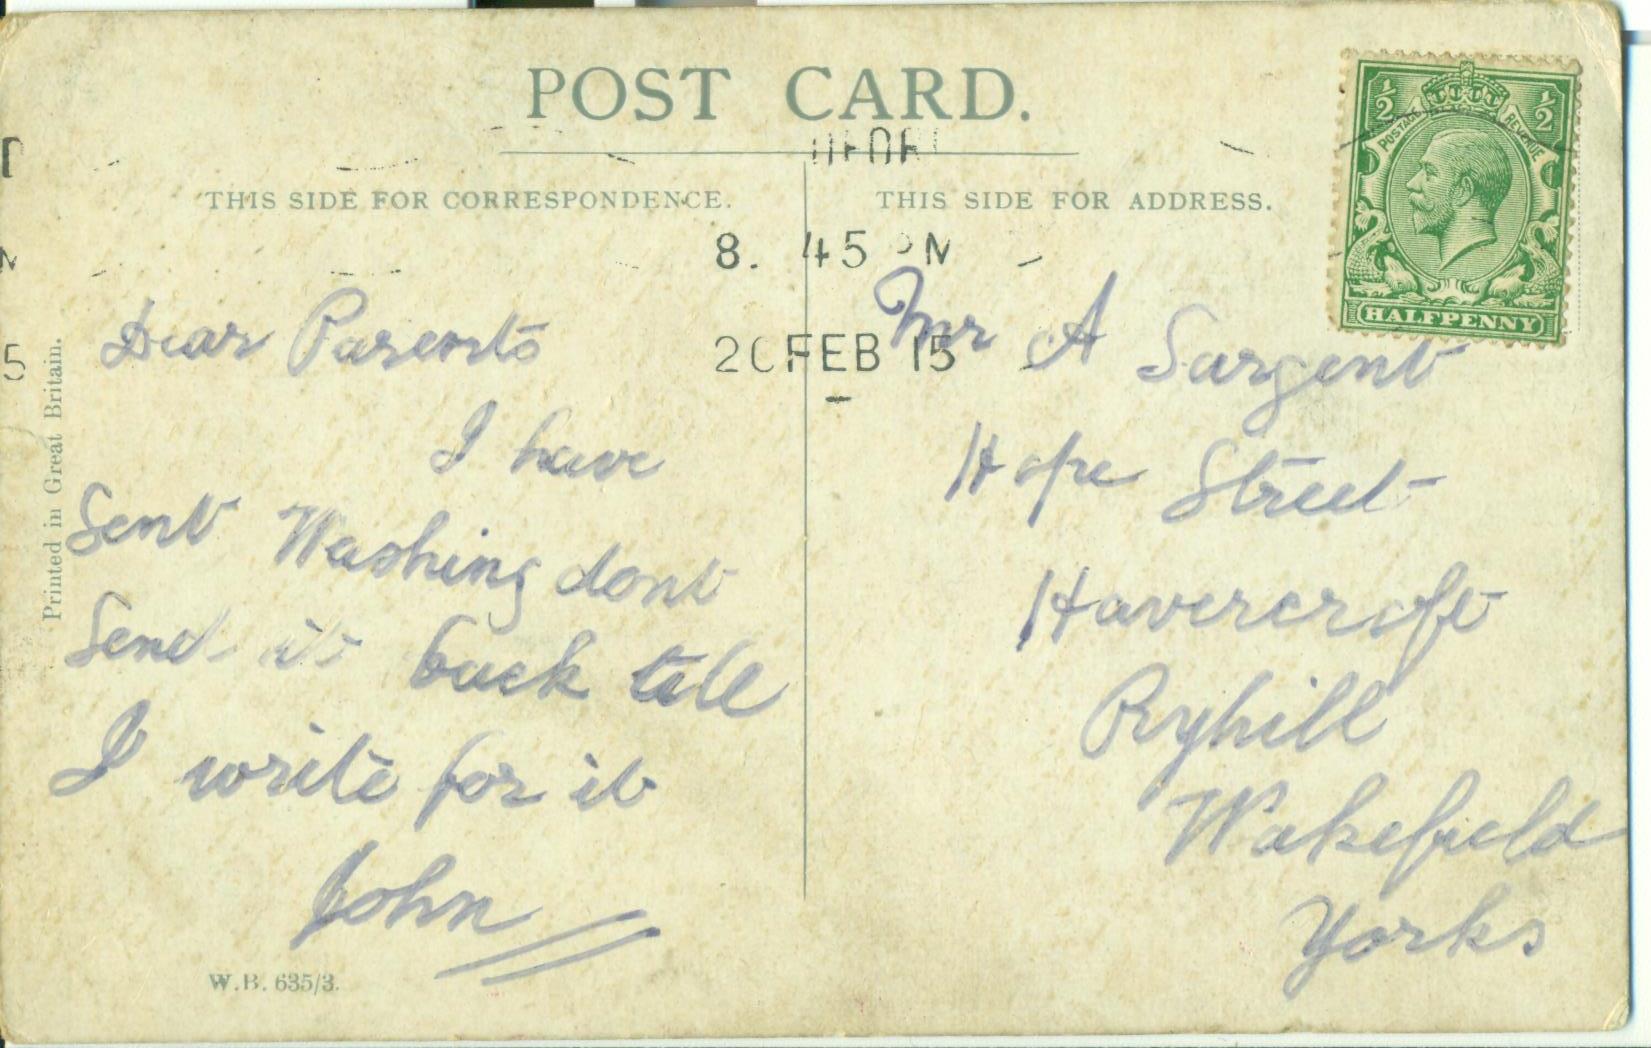 POST CARD.
THIS SIDE FOR CORRESPONDENCE.
THIS SIDE FOR ADDRESS.
8. 45 PM
FEB 15
Printed in Great Britain.
Dear Parents
I have
Sent Washing dont
Send it back till
I write for it
John
W.B. 635/3.
½ ½
POSTAGE REVENUE
HALFPENNY
Mr A Sargent
Hope Street
Havercroft
Ryhill
Wakefield
Yorks